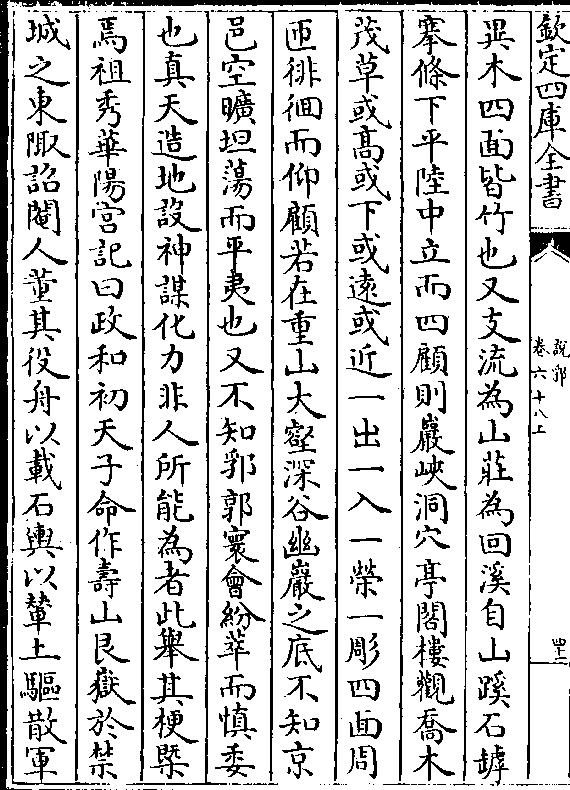 欽定四庫全書
說郛
卷六十八上
四十二
異木四面皆竹也又支流為山莊為回溪自山蹊石罅
搴條下平陸中立而四顧則巖峽洞穴亭閣樓觀喬木
茂草或高或下或遠或近一出一入一榮一彫四面周
匝徘徊而仰顧若在重山大壑深谷幽巖之底不知京
邑空曠坦蕩而平夷也又不知郛郭寰會紛萃而慎委
也真天造地設神謀化力非人所能為者此舉其梗槩
焉祖秀華陽宮記曰政和初天子命作壽山艮嶽於禁
城之東陬詔閹人董其役舟以載石輿以輦土驅散軍